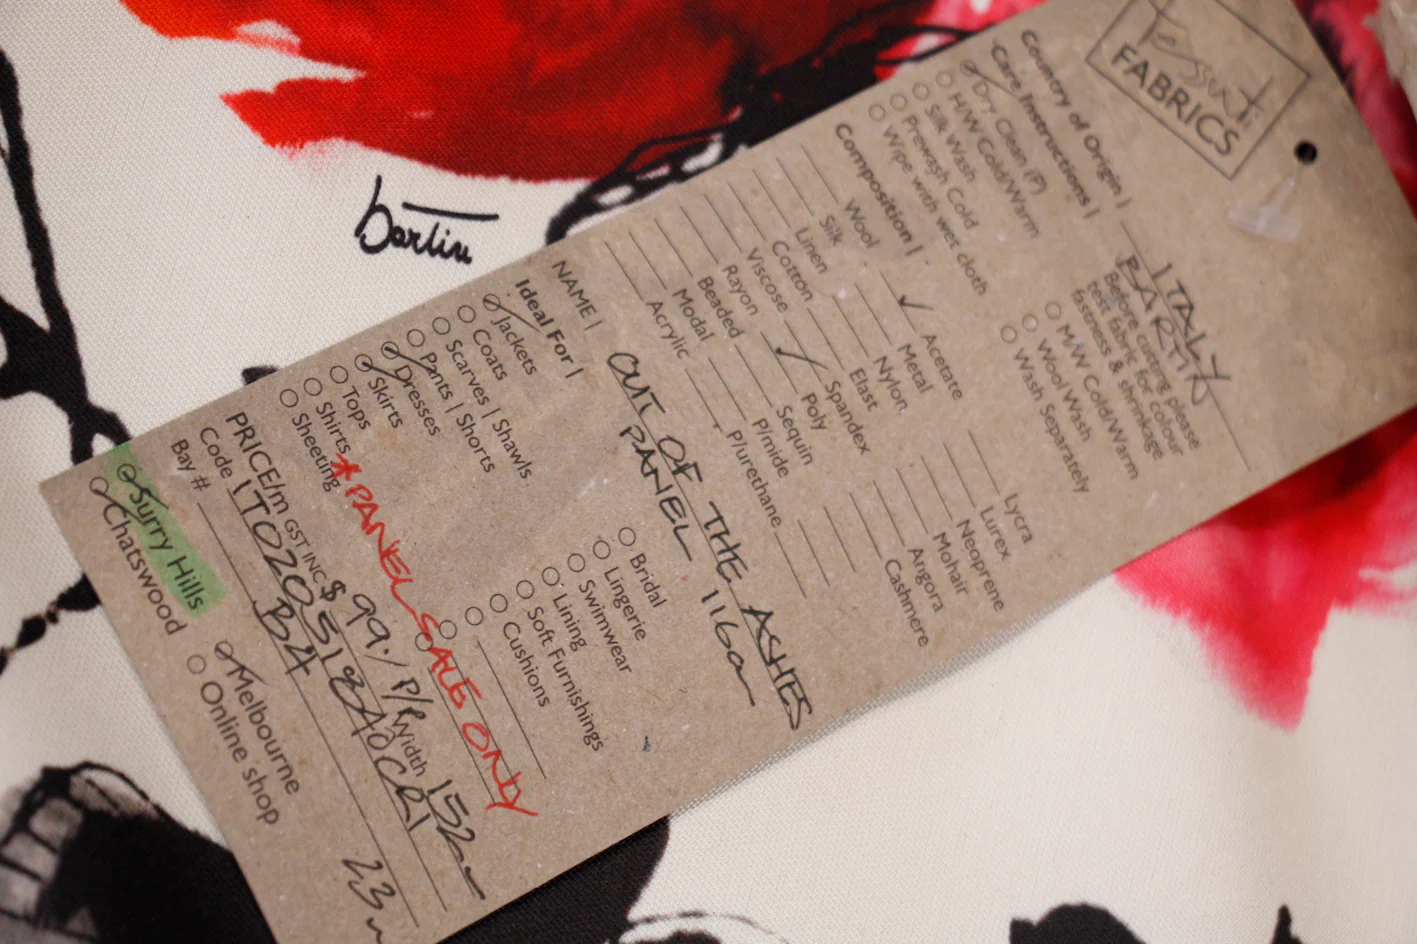 Tessuti
FABRICS
Country of Origin | ITALY
Care Instructions | BARTIX
Dry Clean (P)
H/W Cold/Warm
Silk Wash
Prewash Cold
Wipe with wet cloth
Before cutting please
test fabric for colour
fastness & shrinkage
M/W Cold/Warm
Wool Wash
Wash Separately
Composition |
Wool
Silk
Linen
Cotton
Viscose
Rayon
Beaded
Modal
Acrylic
Acetate
Metal
Nylon
Elast
Spandex
Poly
Sequin
P/mide
P/urethane
Lycra
Lurex
Neoprene
Mohair
Angora
Cashmere
NAME | OUT OF THE ASHES
PANEL 116cm
Ideal For |
Jackets
Coats
Scarves | Shawls
Pants | Shorts
Dresses
Skirts
Tops
Shirts
Sheeting
Bridal
Lingerie
Swimwear
Lining
Soft Furnishings
Cushions
* PANEL SALE ONLY
PRICE/m GST INC $99./P/P Width 152cm
Code
Bay # B24
Surry Hills
Chatswood
Melbourne
Online shop